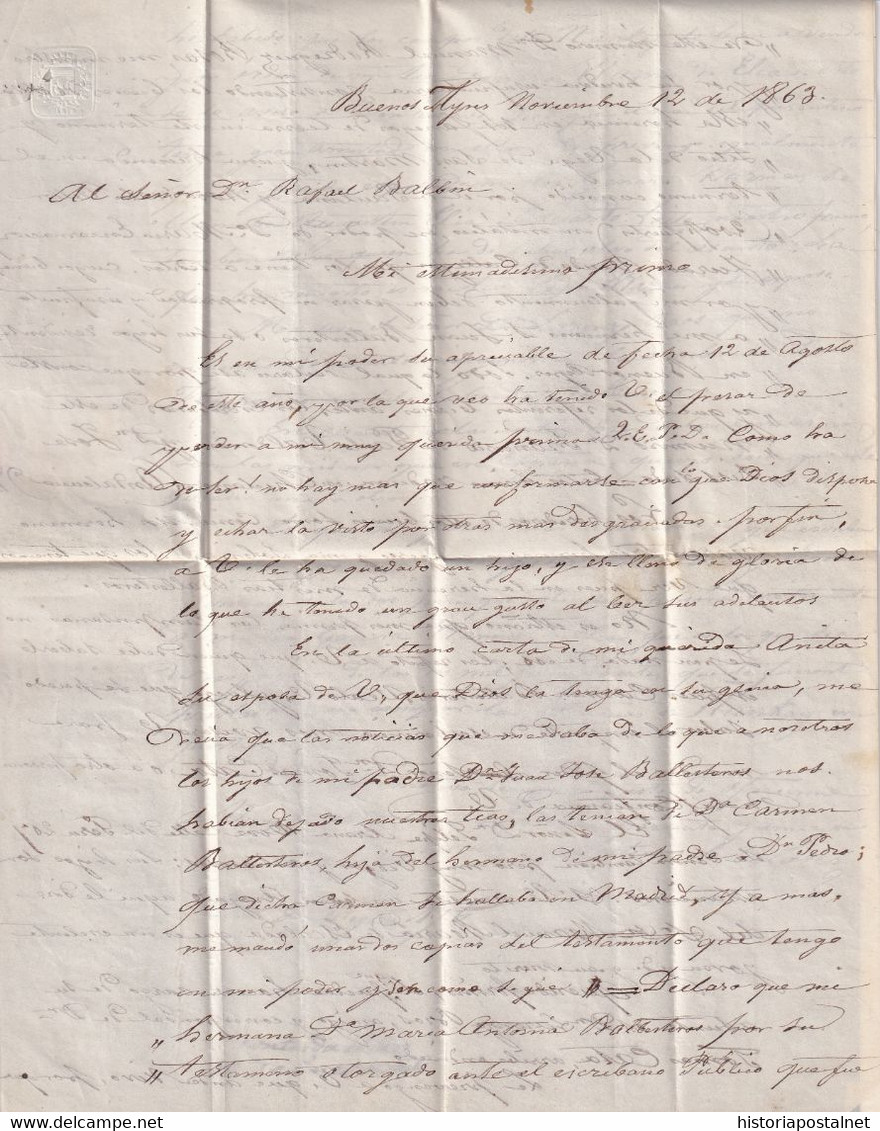 Buenos Ayres Noviembre 12 de 1863.
Al Señor Dn. Rafael Balbin
Mi estimadisimo primo
Es en mi poder su apreciable de fecha 12 de Agosto
de este año, y por la que veo ha tenido V. el pesar de
perder a mi muy querida prima Q.E.P.D. Como ha
de ser! no hay mas que conformarse con lo que Dios dispone
y echar la vista por otras mas desgraciadas. por fin,
a V. le ha quedado un hijo, y ese lleno de gloria de
lo que he tenido un gran gusto al leer sus adelantos
En la ultima carta de mi querida Anita
su esposa de V. que Dios la tenga en su gloria, me
decia que las noticias que me daba de lo que a nosotros
los hijos de mi padre Dn. Juan Jose Ballesteros nos
habian dejado nuestras tias, las tenian de Da. Carmen
Ballesteros, hija del hermano de mi padre, Dn. Pedro;
que dicha Carmen se hallaba en Madrid, y a mas,
me mandó unas dos copias del testamento que tengo
en mi poder y son como sigue " = Declaro que mi
" hermana Da. Maria Antonia Ballesteros por su
" testamento otorgado ante el escribano Publico que fue
historiapostalnet